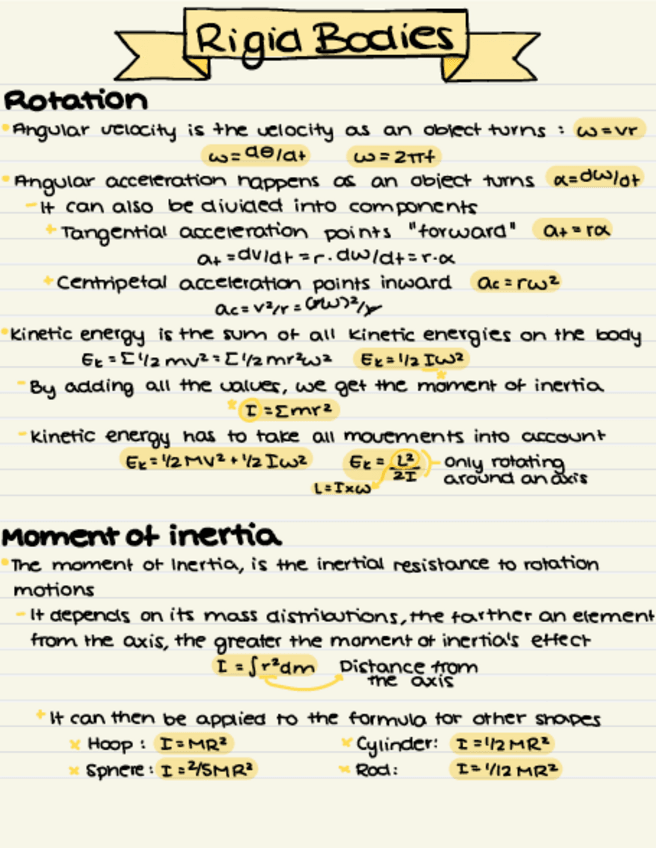 Rigid Bodies
Rotation
Angular velocity is the velocity as an object turns : ω=vr
ω=dθ/dt ω=2πf
Angular acceleration happens as an object turns α=dω/dt
-It can also be divided into components
+Tangential acceleration points "forward" at=rα
at=dv/dt=r·dω/dt=r·α
+Centripetal acceleration points inward ac=rω²
ac=v²/r=(rω)²/r
Kinetic energy is the sum of all kinetic energies on the body
Ek=Σ1/2mv²=Σ1/2mr²ω² Ek=1/2Iω²
-By adding all the values, we get the moment of inertia
*I=Σmr²
-Kinetic energy has to take all movements into account
Ek=1/2MV²+1/2Iω² Ek=L²/2I Only rotating
L=I×ω around an axis
Moment of inertia
The moment of Inertia, is the inertial resistance to rotation
motions
-It depends on its mass distributions, the farther an element
from the axis, the greater the moment of inertia's effect
I=∫r²dm Distance from
the axis
+It can then be applied to the formula for other shapes
× Hoop: I=MR² × Cylinder: I=1/2MR²
× Sphere: I=2/5MR² × Rod: I=1/12MR²